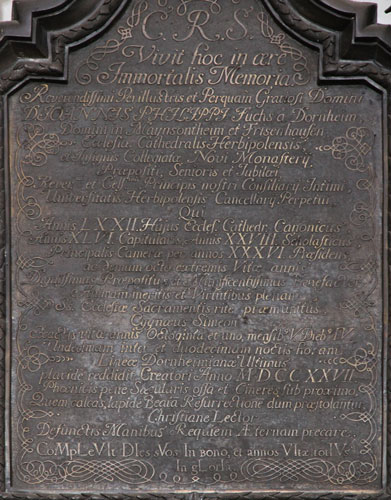 C.R.S.
Vivit hoc in aere
Immortalis Memoria
Reverendissimi Perillustris et Perquam Gratiosi Domini
D. IOANNIS PHILIPPI Fuchs a Dornheim
Domini in Maynsontheim et Frisenhausen
Ecclesiæ Cathedralis Herbipolensis,
et Insignis Collegiatæ Novi Monastery,
Præpositi, Senioris et Jubilæi
Rever et Cels Principis nostri Consiliary Intimi
Universitatis Herbipolensis Cancellary Perpetui
Qui
Annis LXXII. Hujus Eccles Cathedr Canonicus
Annis XLVI Capitularis Annis XXVIII Scholasticus
Principalis Cameræ per annos XXXVI Præsidens
octo extremis Vitæ annis
Dignissimus Præpositus et
meritis et Virtutibus plenus
Ecclesiæ Sacramentis rite præmunitus
Simeon
Octoginta et uno, mensib V dieb IV
Undecimam inter et duodecimam noctis horam
Lineæ Dornheimianæ Ultimus
placide reddidit Creatori Anno MDCCXXVII
Phœnicis pene Sæcularis ossa et Cineres sub proximo
Quem calcas, lapide Beata Resurrectione dum præstolantur
Christiane Lector
Defunctis Manibus Requiem Æternam precare.
CoMpLeVIt DIes sVos In bono, et annos VItæ
In gLorIa